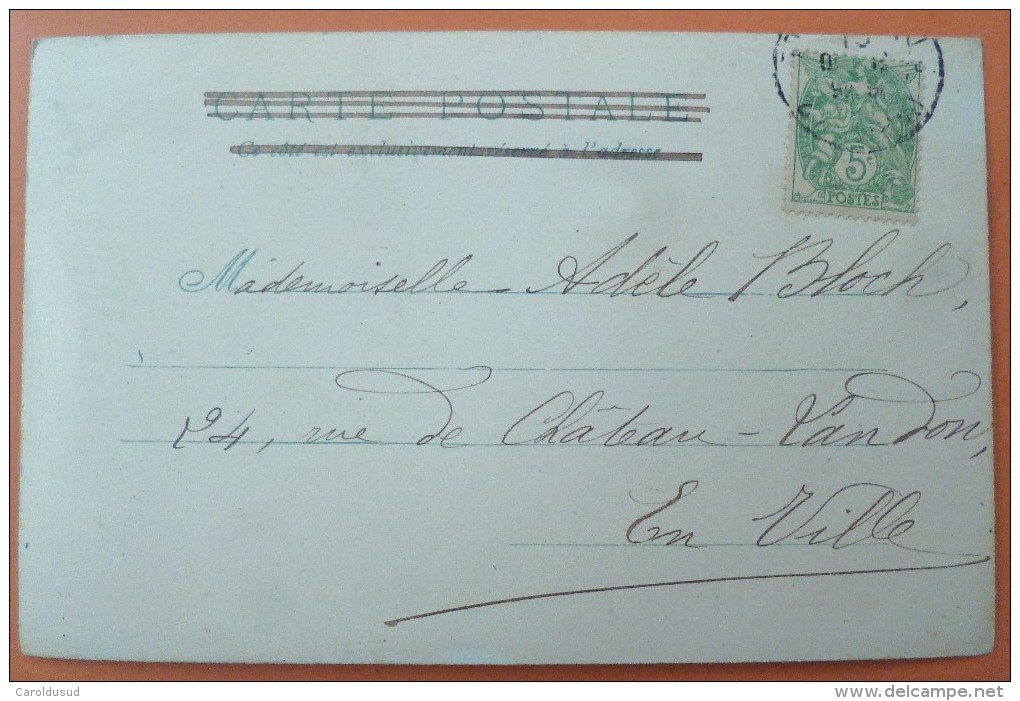 CARTE POSTALE
Ce côté est exclusivement réservé à l'adresse
5c
POSTES
Mademoiselle Adèle Bloch,
24, rue de Château-Landon,
En Ville
Caroldusud
http://www.delcampe.net